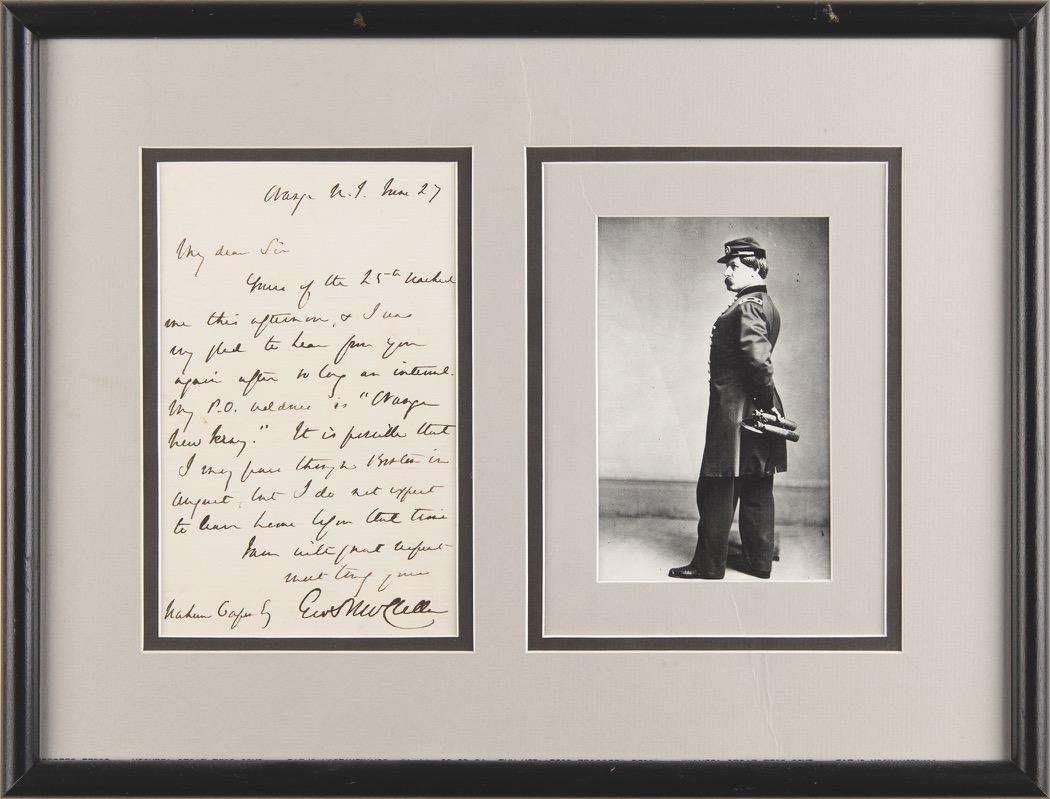 Orange N. J. June 27
My dear Sir
Yours of the 25th reached
me this afternoon, & I was
very glad to hear from you
again after so long an interval.
My P.O. address is "Orange
New Jersey." It is possible that
I may pass through Boston in
August, but I do not expect
to leave home before that time
I am with great respect
most truly yours
Geo B McClellan
Nahum Capen Esq